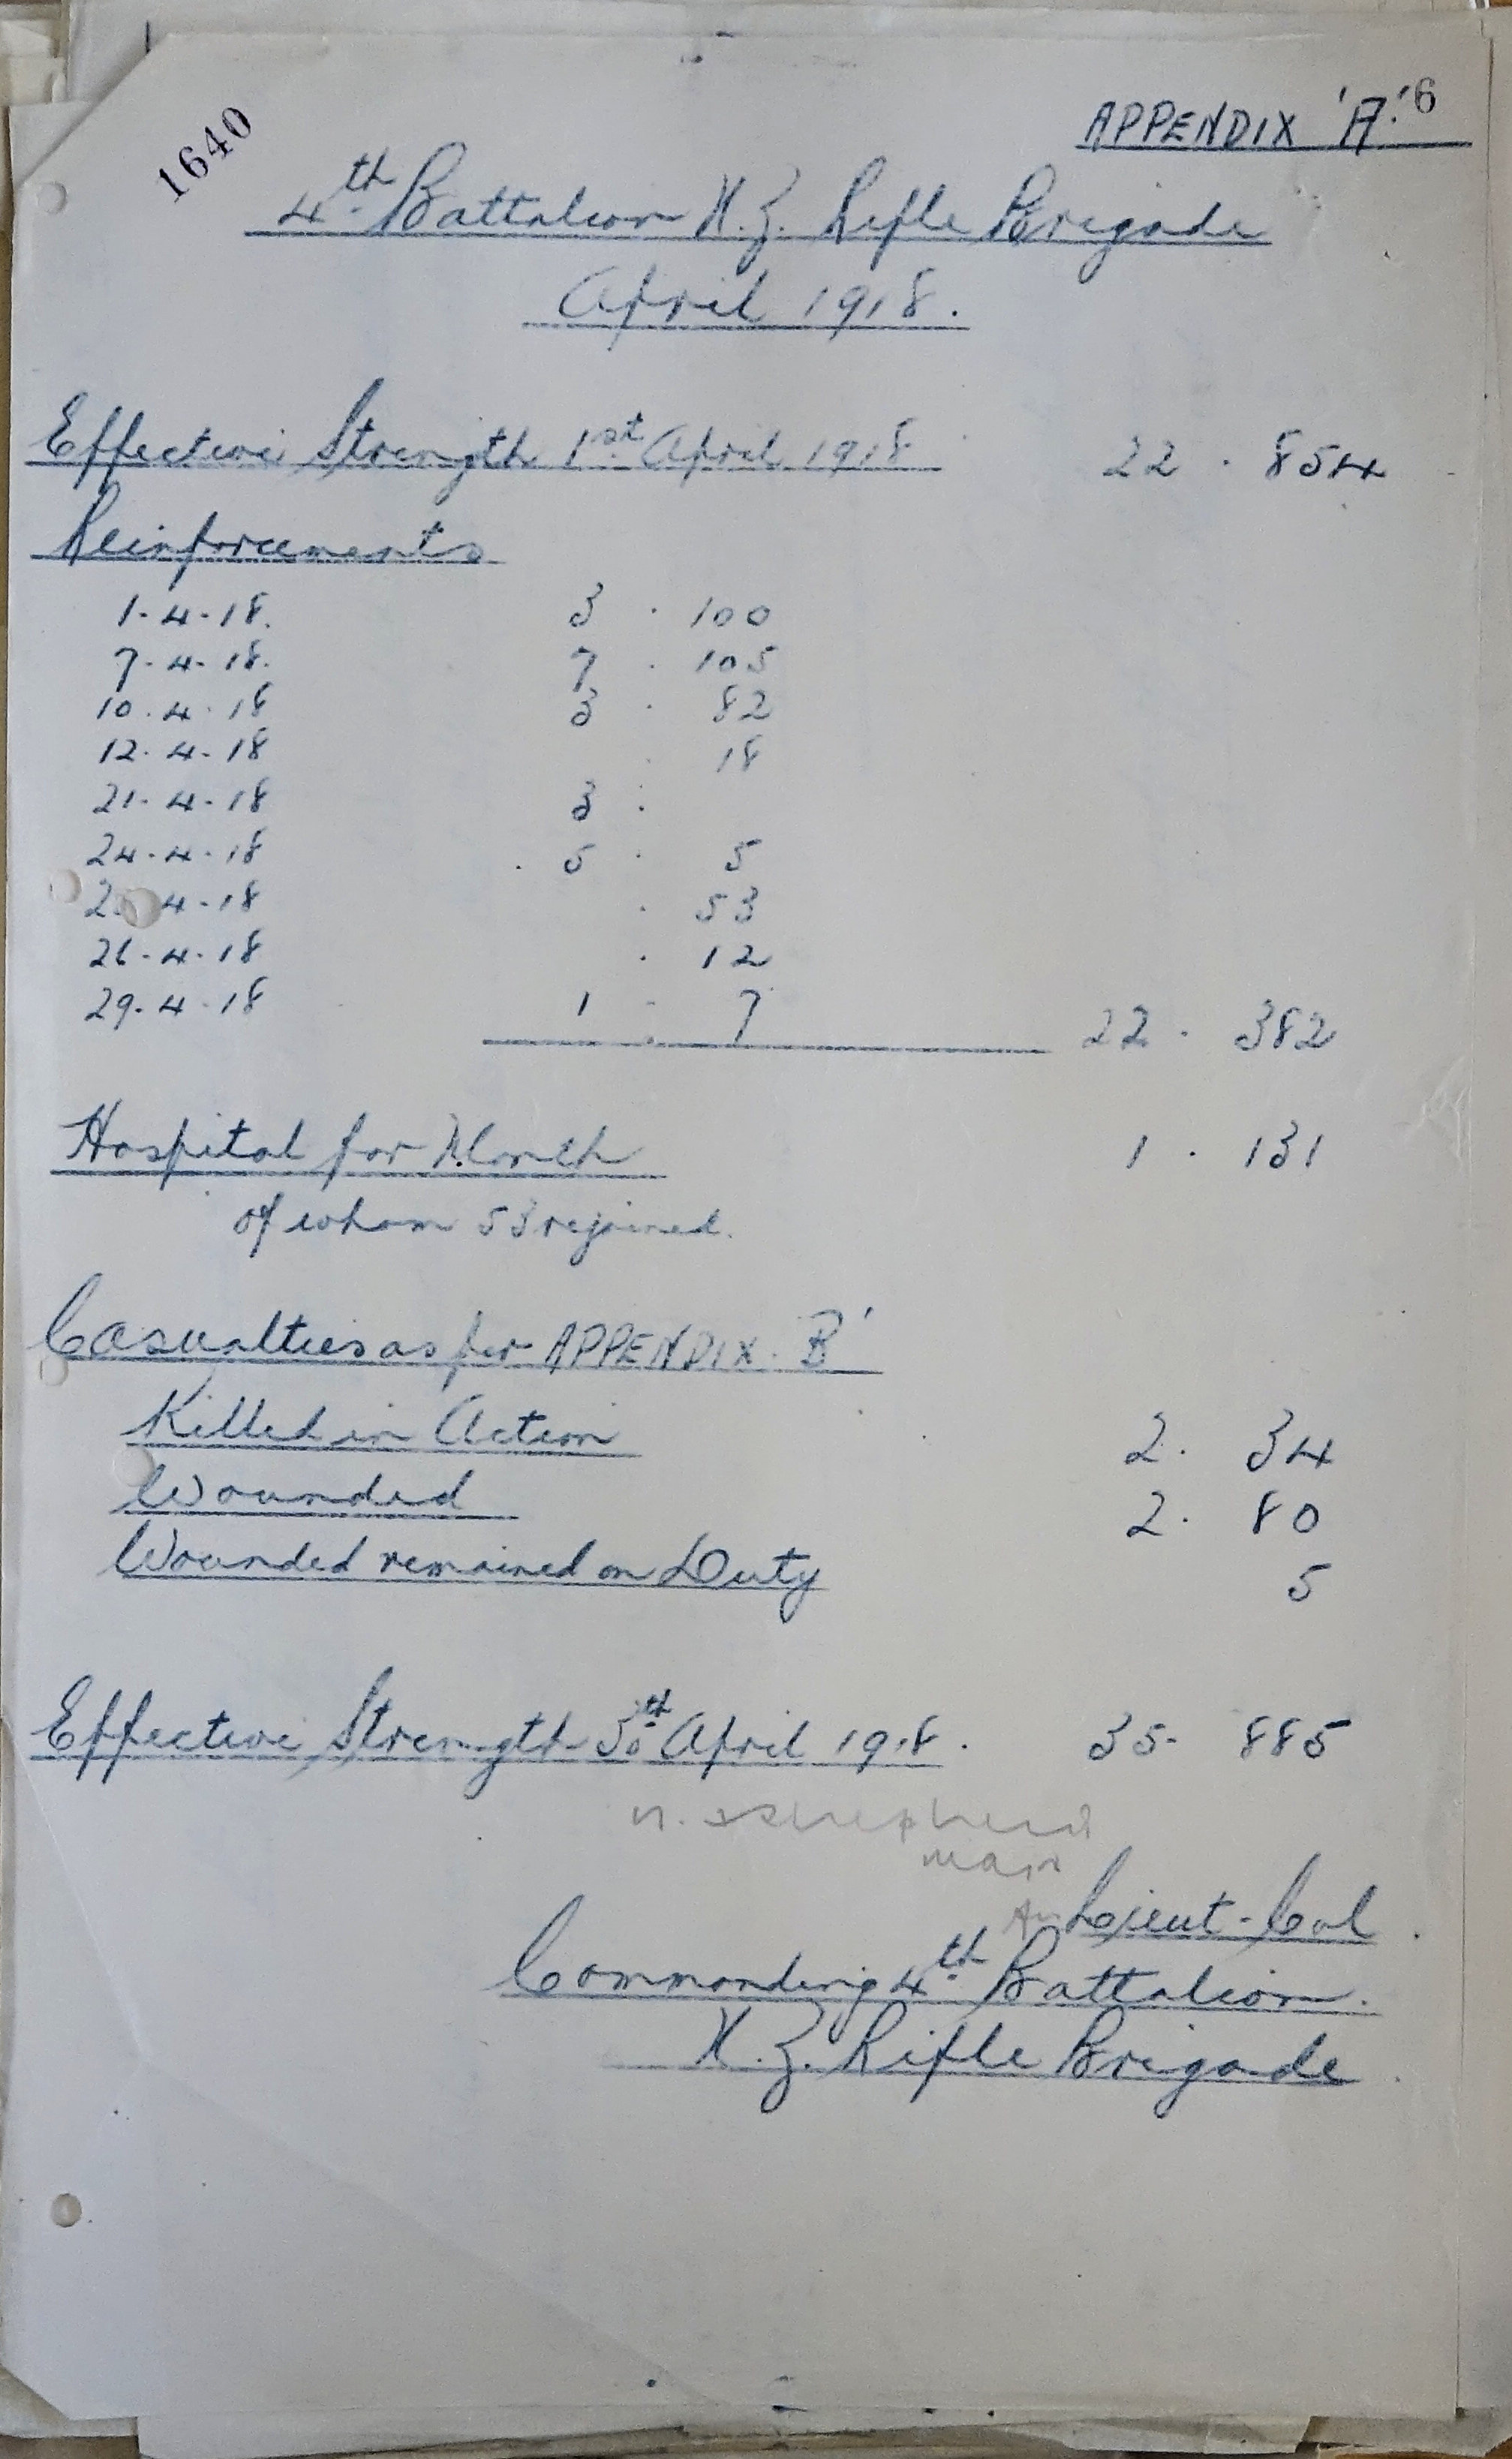 1640
APPENDIX 'A'. 6
4th Battalion N.Z. Rifle Brigade
April 1918.
Effective Strength 1st April 1918 22 . 854
Reinforcements
1-4-18. 3 . 100
7-4-18. 7 . 105
10.4.18 3 . 82
12.4-18 . 18
21-4-18 3 :
24.4.18 . 5 . 5
4-18 . 53
26-4-18 . 12
29-4-18 1 - 7
22 . 382
Hospital for Month 1 . 131
of whom 53 rejoined.
Casualties as per APPENDIX 'B'
Killed in Action 2. 34
Wounded 2. 80
Wounded remained on Duty 5
Effective Strength 30th April 1918. 35- 885
Shepherd
Lieut-Col.
Commanding 4th Battalion.
N.Z. Rifle Brigade.